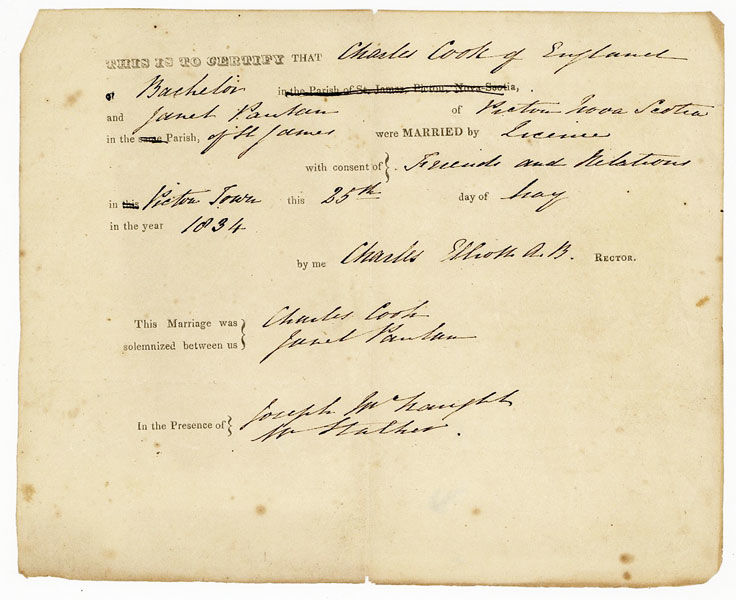 THIS IS TO CERTIFY THAT Charles Cook of England
of Bachelor in the Parish of St. James, Pictou, Nova-Scotia,
and Janet of Pictou Nova Scotia
in the same Parish, of St James were MARRIED by Licence
with consent of } Friends and Relations
in this Pictou Town this 25th day of May
in the year 1834
by me Charles Elliott A.B. RECTOR.
This Marriage was } Charles Cook
solemnized between us } Janet
In the Presence of { Joseph